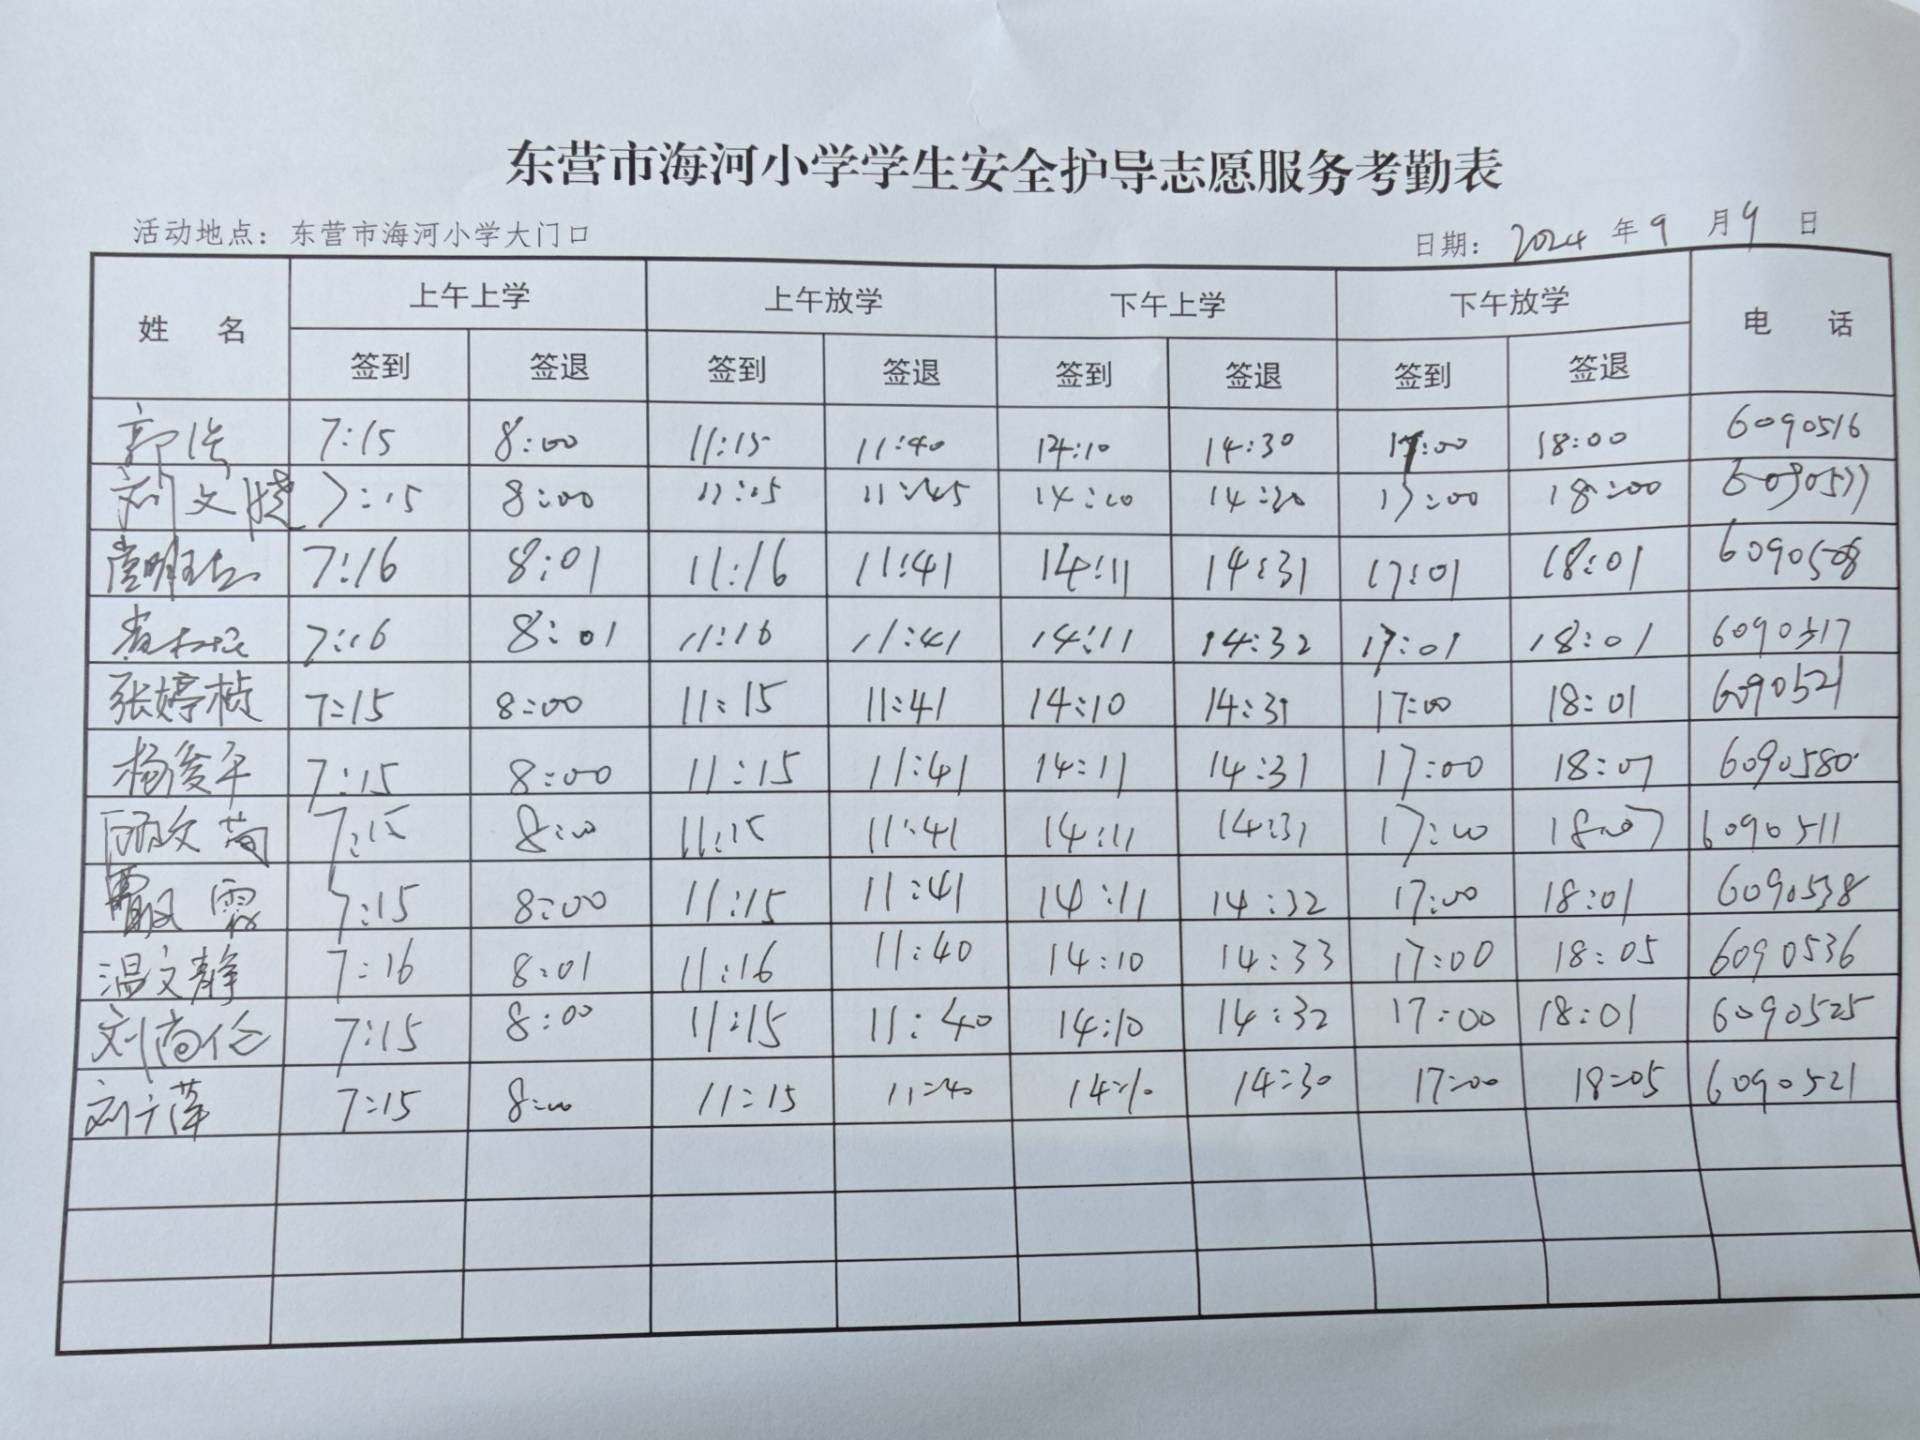 东营市海河小学学生安全护导志愿服务考勤表
活动地点：东营市海河小学大门口 日期：2024年9月9日
姓名 上午上学 上午放学 下午上学 下午放学 电话
签到 签退 签到 签退 签到 签退 签到 签退
郭 7:15 8:00 11:15 11:40 14:10 14:30 17:00 18:00 6090516
刘文捷 7:15 8:00 11:15 11:45 14:10 14:30 17:00 18:00 6090577
7:16 8:01 11:16 11:41 14:11 14:31 17:01 18:01 6090508
7:16 8:01 11:16 11:41 14:11 14:32 17:01 18:01 6090517
张婷桢 7:15 8:00 11:15 11:41 14:10 14:31 17:00 18:01 6090521
杨俊平 7:15 8:00 11:15 11:41 14:11 14:31 17:00 18:01 6090580
7:15 8:00 11:15 11:41 14:11 14:31 17:00 6090511
7:15 8:00 11:15 11:41 14:11 14:32 17:00 18:01 6090538
温文静 7:16 8:01 11:16 11:40 14:10 14:33 17:00 18:05 6090536
刘尚伦 7:15 8:00 11:15 11:40 14:10 14:32 17:00 18:01 6090525
刘广萍 7:15 8:00 11:15 11:40 14:10 14:30 17:00 18:05 6090521